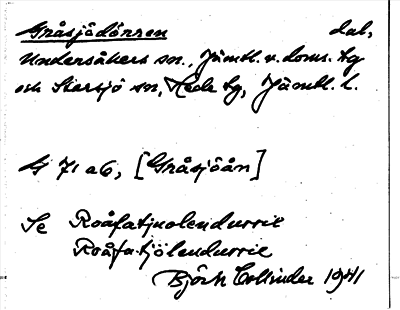 Gråsjödörren dal,
Undersåkers sn., Jämtl. v. doms. tg
och Storsjö sn, Hede tg, Jämtl. l.
G 71 a6, [Gråsjöån]
Se Roåfatjuolendurrie
Roåfatjölendurrie
Björn Collinder 1941